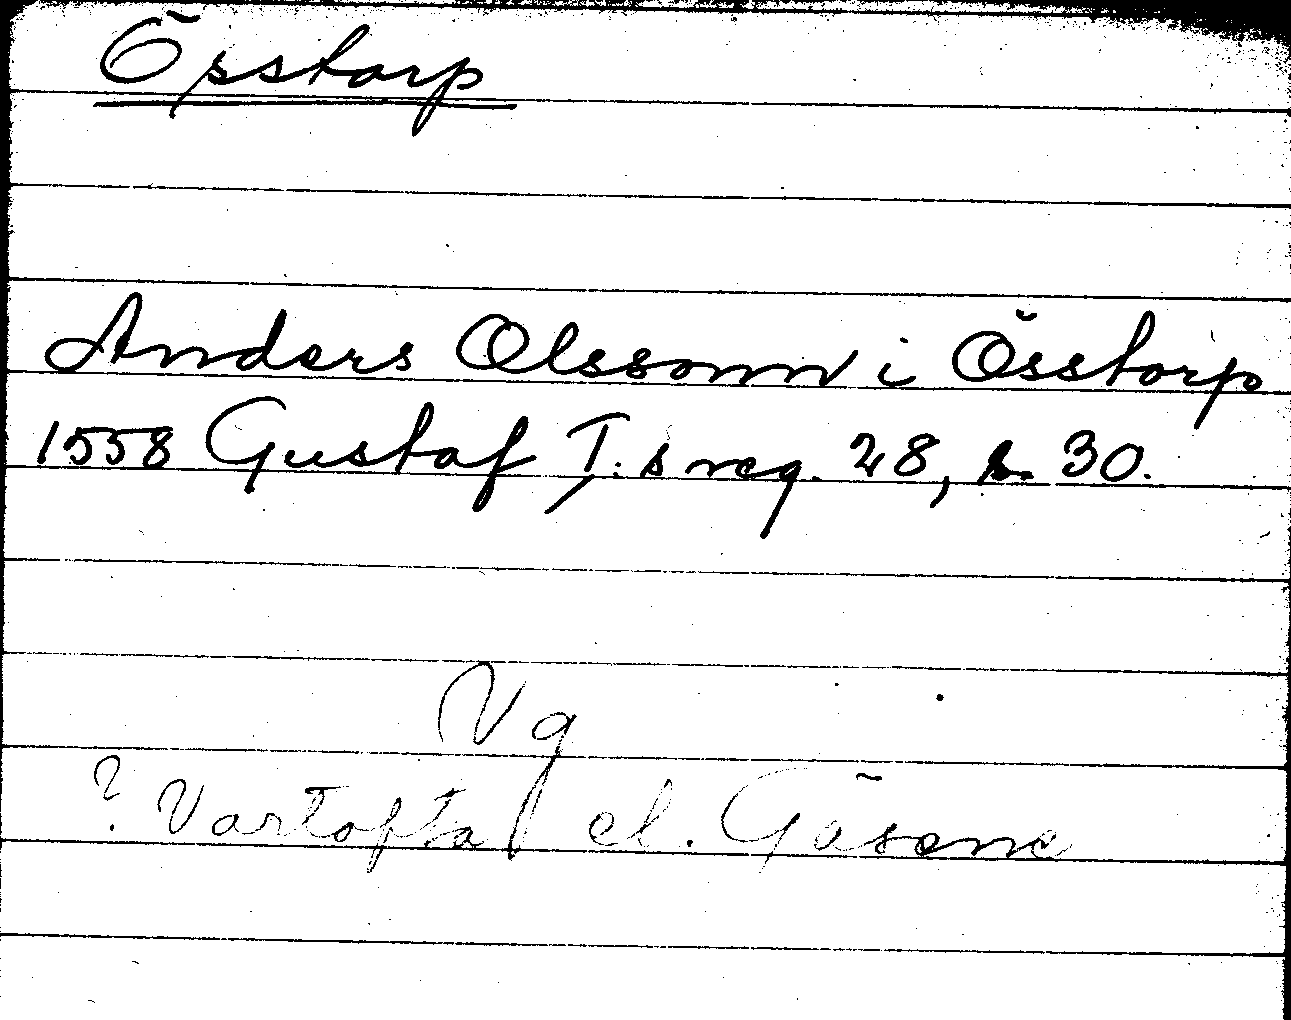 Össtorp
Anders Olssonn i Össtorp
1558 Gustaf I:s reg. 28, s. 30.
Vg
? Vartofta el. Gäsene